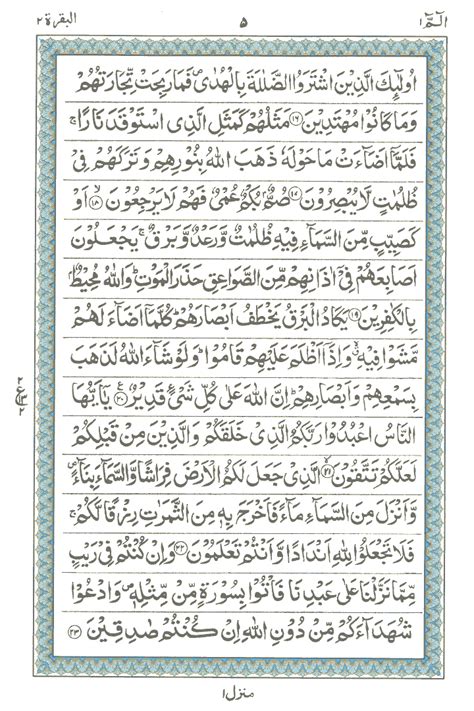 الٓمّٓ ١ ٥ البقرة ٢
اُولٰٓئِكَ الَّذِيْنَ اشْتَرَوُا الضَّلٰلَةَ بِالْهُدٰى فَمَا رَبِحَتْ تِّجَارَتُهُمْ
وَمَا كَانُوْا مُهْتَدِيْنَ ﴿١٦﴾ مَثَلُهُمْ كَمَثَلِ الَّذِى اسْتَوْقَدَ نَارًا ۚ
فَلَمَّآ اَضَآءَتْ مَا حَوْلَهٗ ذَهَبَ اللّٰهُ بِنُوْرِهِمْ وَتَرَكَهُمْ فِىْ
ظُلُمٰتٍ لَّا يُبْصِرُوْنَ ﴿١٧﴾ صُمٌّۢ بُكْمٌ عُمْىٌ فَهُمْ لَا يَرْجِعُوْنَ ﴿١٨﴾ اَوْ
كَصَيِّبٍ مِّنَ السَّمَآءِ فِيْهِ ظُلُمٰتٌ وَّرَعْدٌ وَّبَرْقٌ ۚ يَجْعَلُوْنَ
اَصَابِعَهُمْ فِىْٓ اٰذَانِهِمْ مِّنَ الصَّوَاعِقِ حَذَرَ الْمَوْتِ ؕ وَاللّٰهُ مُحِيْطٌۢ
بِالْكٰفِرِيْنَ ﴿١٩﴾ يَكَادُ الْبَرْقُ يَخْطَفُ اَبْصَارَهُمْ ؕ كُلَّمَآ اَضَآءَ لَهُمْ
مَّشَوْا فِيْهِ ۙ وَاِذَآ اَظْلَمَ عَلَيْهِمْ قَامُوْا ؕ وَلَوْ شَآءَ اللّٰهُ لَذَهَبَ
بِسَمْعِهِمْ وَاَبْصَارِهِمْ ؕ اِنَّ اللّٰهَ عَلٰى كُلِّ شَىْءٍ قَدِيْرٌ ﴿٢٠﴾ يٰٓاَيُّهَا
النَّاسُ اعْبُدُوْا رَبَّكُمُ الَّذِىْ خَلَقَكُمْ وَالَّذِيْنَ مِنْ قَبْلِكُمْ
لَعَلَّكُمْ تَتَّقُوْنَ ﴿٢١﴾ الَّذِىْ جَعَلَ لَكُمُ الْاَرْضَ فِرَاشًا وَّالسَّمَآءَ بِنَآءً
وَّاَنْزَلَ مِنَ السَّمَآءِ مَآءً فَاَخْرَجَ بِهٖ مِنَ الثَّمَرٰتِ رِزْقًا لَّكُمْ ۚ
فَلَا تَجْعَلُوْا لِلّٰهِ اَنْدَادًا وَّاَنْتُمْ تَعْلَمُوْنَ ﴿٢٢﴾ وَاِنْ كُنْتُمْ فِىْ رَيْبٍ
مِّمَّا نَزَّلْنَا عَلٰى عَبْدِنَا فَاْتُوْا بِسُوْرَةٍ مِّنْ مِّثْلِهٖ ۪ وَادْعُوْا
شُهَدَآءَكُمْ مِّنْ دُوْنِ اللّٰهِ اِنْ كُنْتُمْ صٰدِقِيْنَ ﴿٢٣﴾
منزل ١